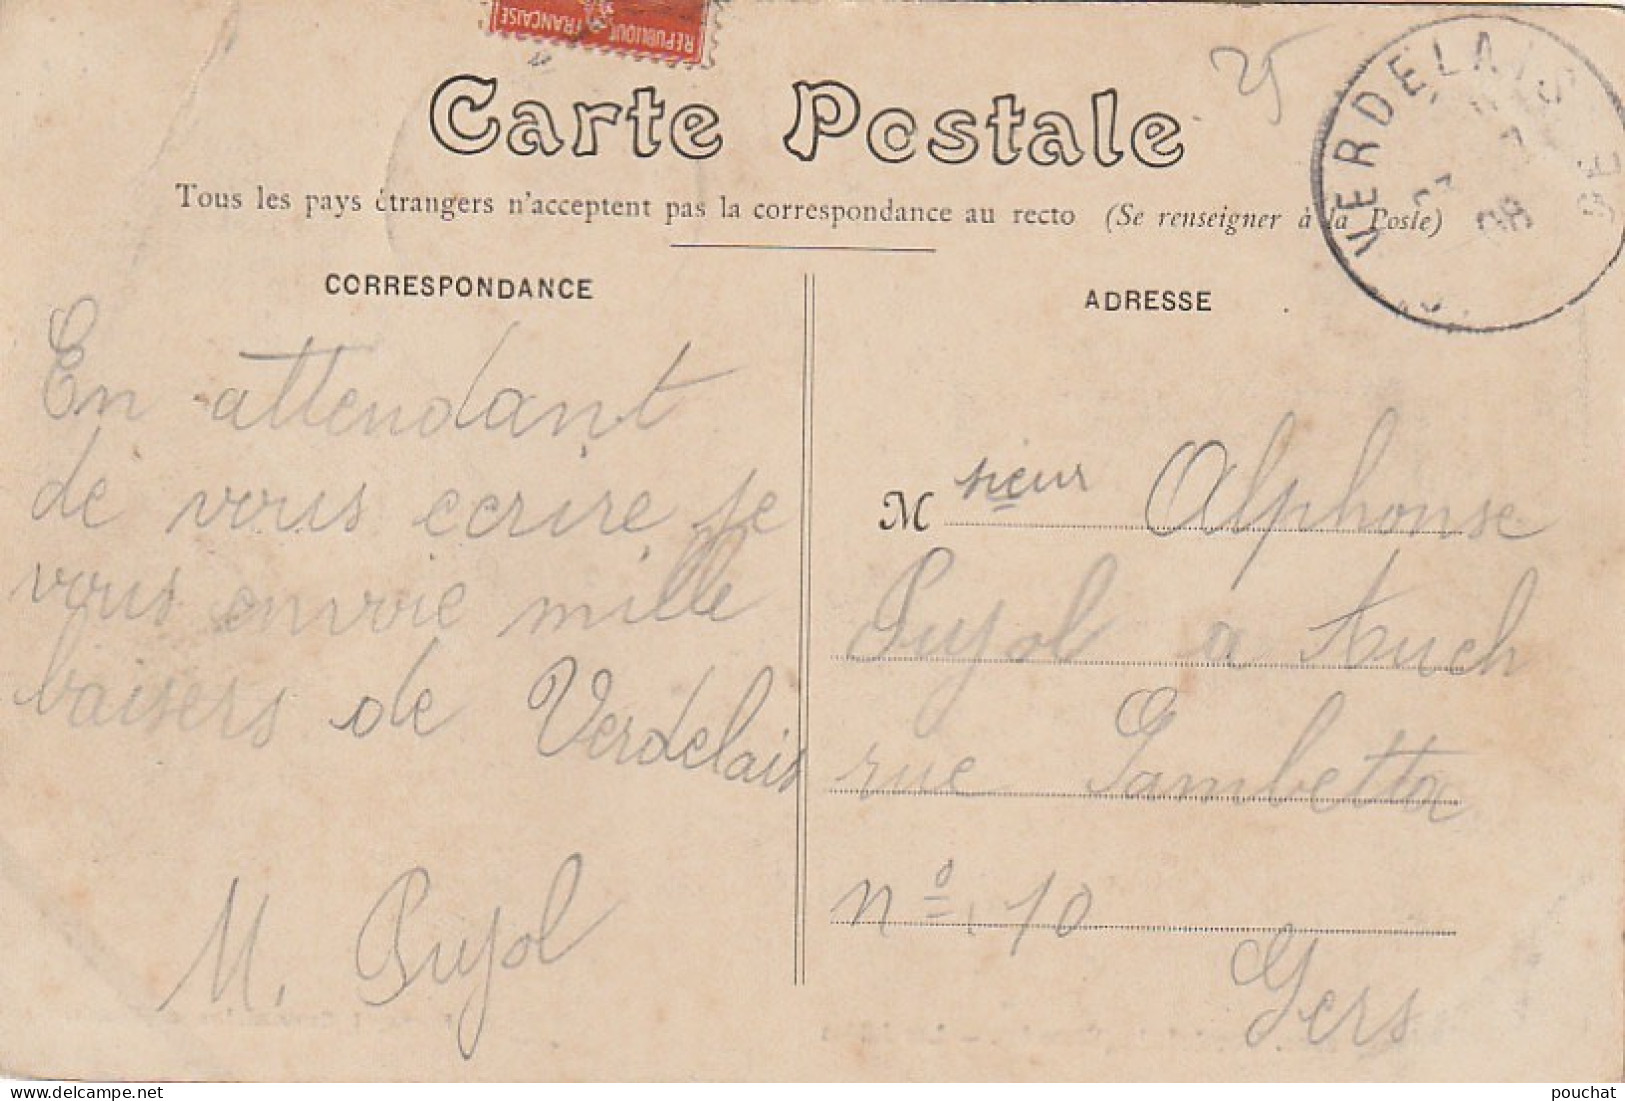 RÉPUBLIQUE FRANÇAISE
25
Carte Postale
VERDELAIS
08
Tous les pays étrangers n'acceptent pas la correspondance au recto (Se renseigner à la Poste)
CORRESPONDANCE
En attendant
de vous ecrire je
vous envoie mille
baisers de Verdelais
M. Pujol
ADRESSE
Msieur Alphonse
Pujol a Auch
rue Gambetta
nº 10
Gers
pouchat